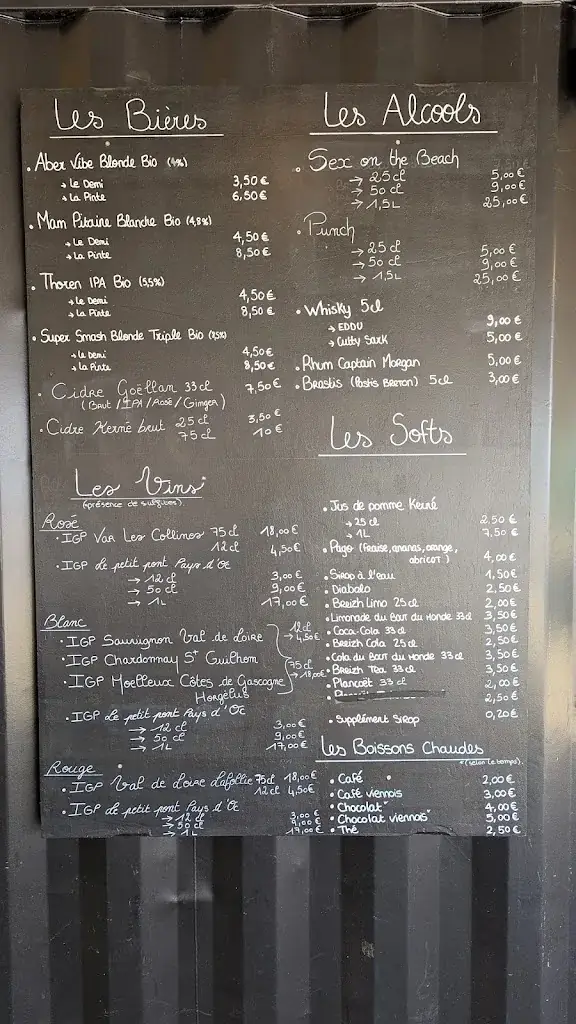 Les Bières
Aber Vibe Blonde Bio (4%)
→ Le Demi 3,50 €
→ La Pinte 6,50 €
Mam Pitaine Blanche Bio (4,8%)
→ Le Demi 4,50 €
→ La Pinte 8,50 €
Thoren IPA Bio (5,5%)
→ Le Demi 4,50 €
→ La Pinte 8,50 €
Super Smash Blonde Triple Bio
→ Le Demi 4,50 €
→ La Pinte 8,50 €
Cidre Goëllan 33cl 7,50 €
(Brut / IPA / Rosé / Ginger)
Cidre Kerné brut 25 cl 3,50 €
75 cl 10 €
Les Vins*
(présence de sulfites)
Rosé
IGP Var Les Collines 75 cl 18,00 €
12 cl 4,50 €
IGP Le petit pont Pays d'Oc
→ 12 cl 3,00 €
→ 50 cl 9,00 €
→ 1L 17,00 €
Blanc
IGP Sauvignon Val de Loire
IGP Chardonnay St Guilhem
IGP Moelleux Côtes de Gascogne
12 cl → 4,50 €
75 cl → 18,00 €
IGP Le petit pont Pays d'Oc
→ 12 cl 3,00 €
→ 50 cl 9,00 €
→ 1L 17,00 €
Rouge
IGP Val de Loire Lafollie 75 cl 18,00 €
12 cl 4,50 €
IGP Le petit pont Pays d'Oc
→ 12 cl 3,00 €
→ 50 cl 9,00 €
→ 1L 17,00 €
Les Alcools
Sex on the Beach
→ 25 cl 5,00 €
→ 50 cl 9,00 €
→ 1,5L 25,00 €
Punch
→ 25 cl 5,00 €
→ 50 cl 9,00 €
→ 1,5L 25,00 €
Whisky 5cl
→ EDDU 9,00 €
→ Cutty Sark 5,00 €
Rhum Captain Morgan 5,00 €
Brastis (Pastis Breton) 5cl 3,00 €
Les Softs
Jus de pomme Kerné
→ 25 cl 2,50 €
→ 1L 7,50 €
Pago (Fraise, ananas, orange, abricot) 4,00 €
Sirop à l'eau 1,50 €
Diabolo 2,50 €
Breizh Limo 25 cl 2,00 €
Limonade du Bout du Monde 33 cl 3,50 €
Coca-Cola 33 cl 3,50 €
Breizh Cola 25 cl 2,50 €
Cola du Bout du Monde 33 cl 3,50 €
Breizh Tea 33 cl 3,50 €
Plancoët 33 cl 2,00 €
2,50 €
Supplément Sirop 0,20 €
Les Boissons Chaudes
*(selon le temps)
Café 2,00 €
Café viennois 3,00 €
Chocolat* 4,00 €
Chocolat viennois* 5,00 €
Thé 2,50 €